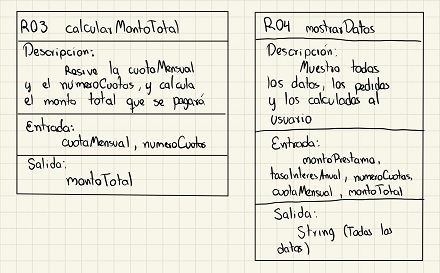 R03 calcularMontoTotal
Descripcion:
Resive la cuotaMensual
y el numeroCuotas, y calcula
el monto total que se pagará
Entrada:
cuotaMensual, numeroCuotas
Salida:
montoTotal
R04 mostrarDatos
Descripción:
Muestra todas
los datos, los pedidos
y los calculados al
usuario
Entrada:
montoPrestamo,
tasaInteresAnual, numeroCuotas,
cuotaMensual, montoTotal
Salida:
String (Todos los
datos)